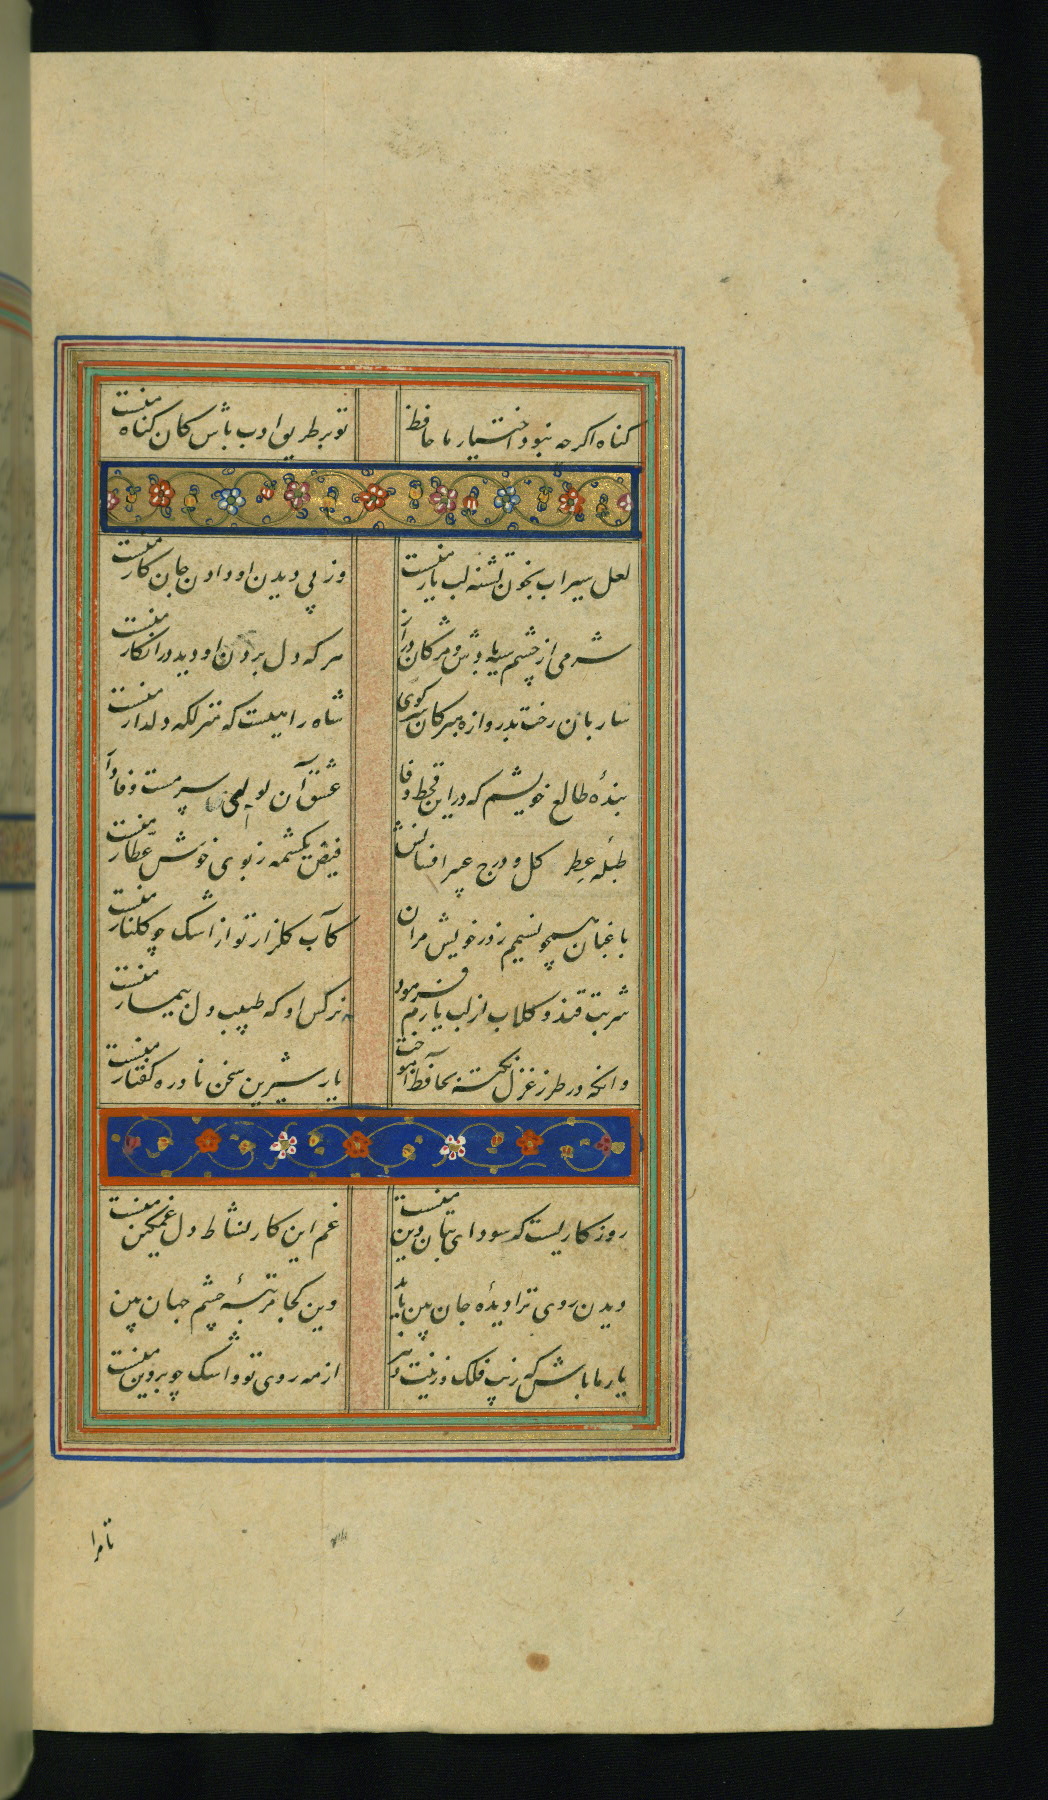 کناه اکرچه نبود اختیار ما حافظ
تو بر طریق ادب باش کان کناه منست
لعل سیراب بخون تشنه لب یار منست
وز پی دیدن او دادن جان کار منست
شرمی از چشم سیه بادش و مژکان دراز
هر که دل بردن او دید در انکار منست
ساربان رخت بدروازه مبر کان سر کوی
شاه راهیست که منزلکه دلدار منست
بندهٔ طالع خویشم که در این قحط وفا
عشق آن لولی سرمست وفادار
طبله عطر کل و درج عبیر افشانش
فیض یکشمه ز بوی خوش عطار منست
باغبان همچو نسیمم ز در خویش مران
کآب کلزار تو از اشک چو کلنار منست
شربت قند و کلاب از لب یارم فرمود
نرکس او که طبیب دل بیمار منست
وانکه در طرز غزل نکته بحافظ آموخت
یار شیرین سخن نادره کفتار منست
روز کاریست که سودای بتان دین منست
غم این کار نشاط دل غمکین منست
دیدن روی ترا دیدهٔ جان بین باید
وین کجا مرتبهٔ چشم جهان بین
یار ما باش که زیب فلک و زینت دهر
از مه روی تو و اشک چو پروین منست
تا مرا